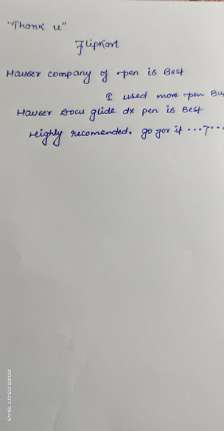 "Thank u"
Flipkart
Hauser company of pen is Best
I used more pen Bu
Hauser Docu glide dx pen is Best
Highly recomended. go for it ...?...